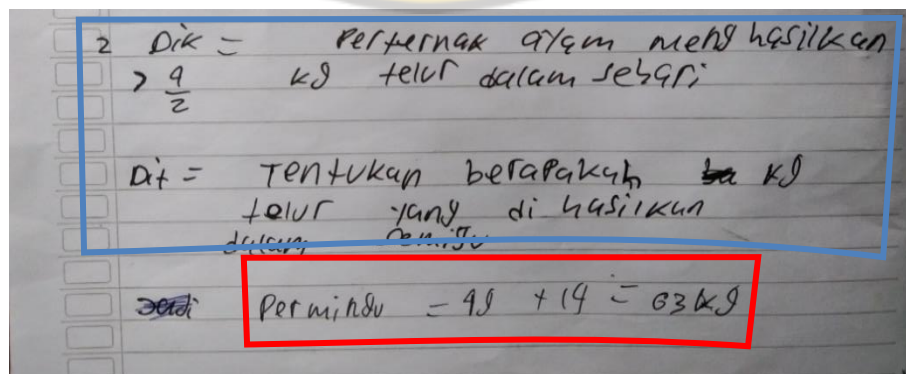 2 Dik = Perternak ayam menghasilkan
7 4/2 kg telur dalam sehari
Dit = Tentukan berapakah kg
telur yang di hasilkan
dalam
Permingu = 49 + 14 = 63 kg